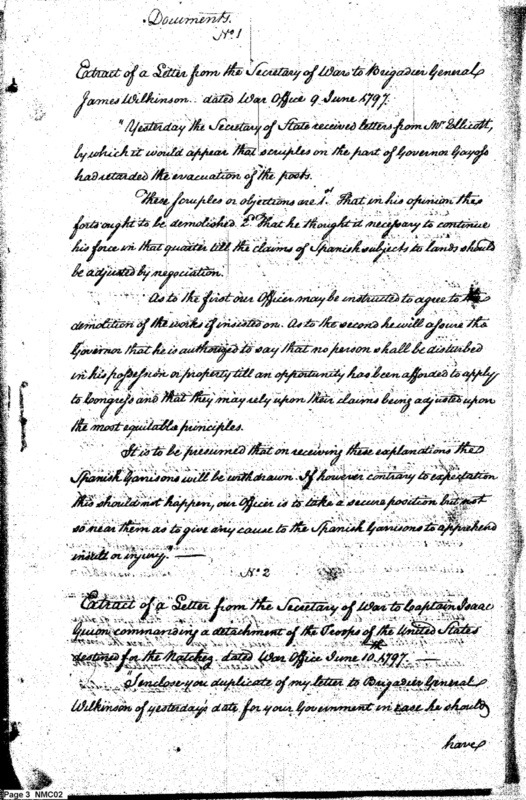 Documents.
No. 1
Extract of a Letter from the Secretary of War to Brigadier General
James Wilkinson.. dated War Office 9 June 1797.
"Yesterday the Secretary of State received letters from Mr. Ellicott,
by which it would appear that scruples on the part of Governor Gayoso
had retarded the evacuation of the posts.
These scruples or objections are 1st. That in his opinion the
forts ought to be demolished 2nd. That he thought it necessary to continue
his force in that quarter till the claims of Spanish subjects to lands should
be adjusted by negociation.
As to the first our Officer may be instructed to agree to the
demolition of the works if insisted on. As to the second he will assure the
Governor that he is authorized to say that no person shall be disturbed
in his possession or property till an opportunity has been afforded to apply
to Congress and that they may rely upon their claims being adjusted upon
the most equitable principles.
It is to be presumed that on receiving these explanations the
Spanish Garrisons will be withdrawn. If however contrary to expectation
this should not happen, our Officer is to take a secure position but not
so near them as to give any cause to the Spanish Garrisons to apprehend
insult or injury."
No. 2
Extract of a Letter from the Secretary of War to Captain Isaac
Guion commanding a detachment of the Troops of the United States
destined for the Natchez. dated War Office June 10th. 1797.
"I enclose you duplicate of my letter to Brigadier General
Wilkinson of yesterday's date for your Government in case he should
have
Page 3 NMC02